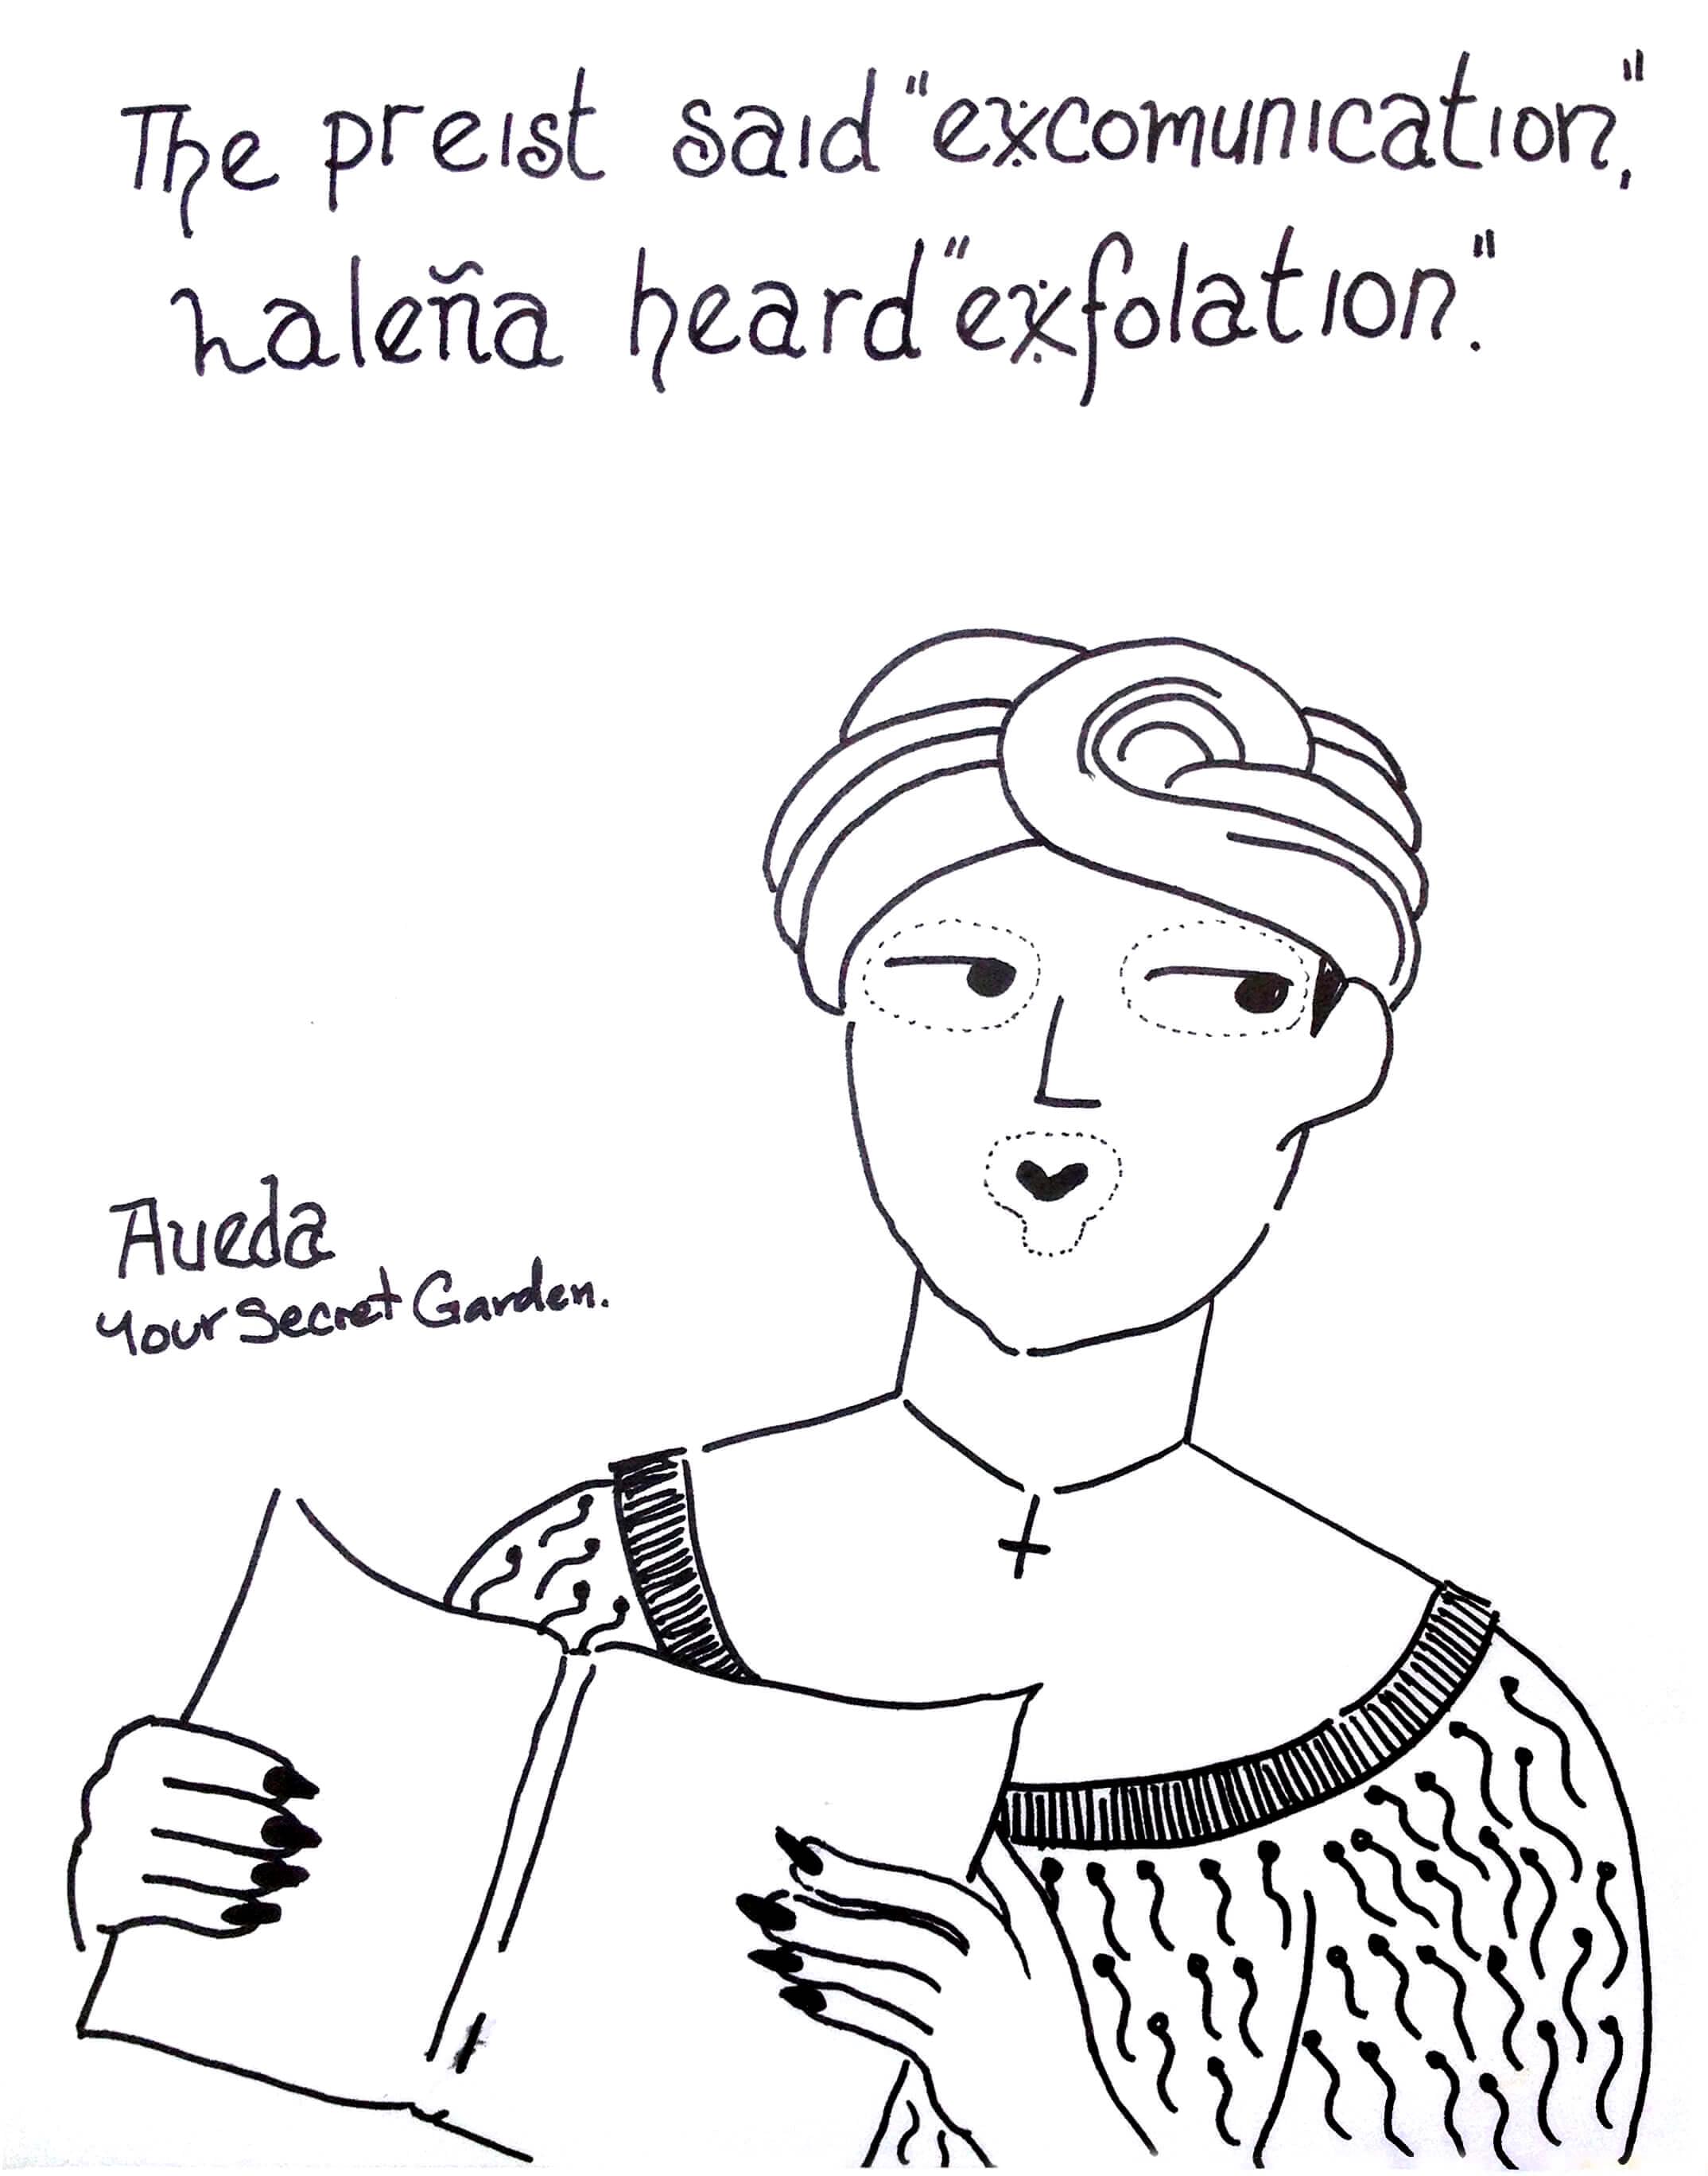 The preist said "excomunication,"
Laleña heard "exfolation."
Aveda
Your Secret Garden.